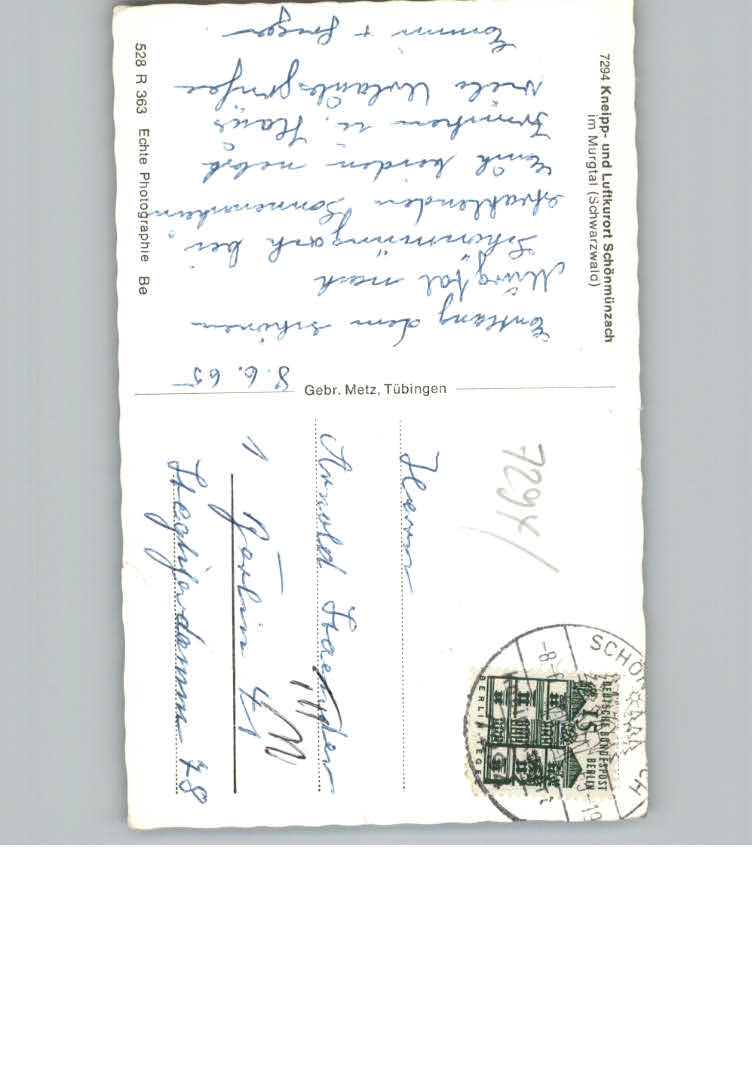 7294 Kneipp- und Luftkurort Schönmünzach
im Murgtal (Schwarzwald)
8.6.65
Entlang dem schönen
Murgtal nach
Schönmünzach bei
strahlenden Sonnenschein
Euch beiden nebst
Frauchen u. Haus
viele Urlaubsgrüße
528 R 363 Echte Photographie Be
Gebr. Metz, Tübingen
7294/
Herrn
Arnold
1 Berlin 41
78
DEUTSCHE BUNDESPOST
BERLIN
15
BERLIN TEGEL
SCHÖN
CH
-8.-6
-19